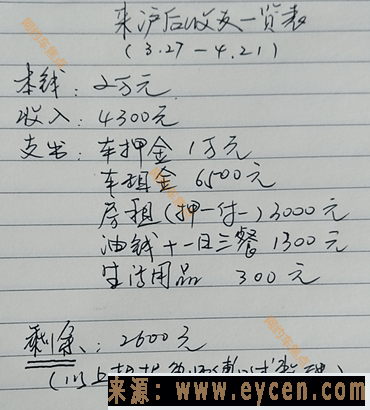 来沪后收支一览表
(3.27－4.21)
本钱：2万元
收入：4300元
支出：车押金 1万元
车租金 6500元
房租(押一付一)3000元
油钱+一日三餐 1300元
生活用品 300元
剩余：2600元
(以上
来源：www.eycen.com